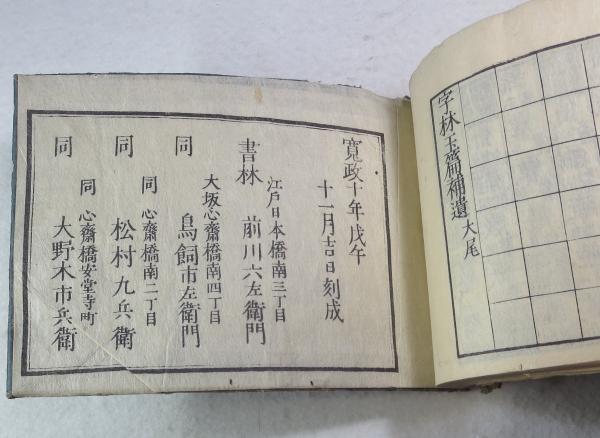 字林玉篇補遺大尾
寛政十年戊午
十一月吉日刻成
江戸日本橋南三丁目
書林 前川六左衛門
大坂心齋橋南四丁目
同 鳥飼市左衛門
同 心齋橋南二丁目
同 松村九兵衛
同 心齋橋安堂寺町
同 大野木市兵衛